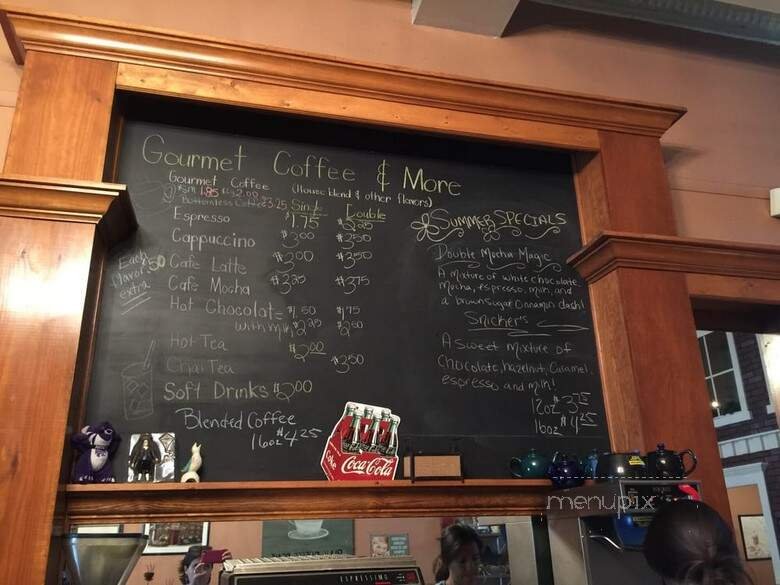 Gourmet Coffee & More
Gourmet Coffee (House blend & other flavors)
Sm 1.85 Lg 2.00
Bottomless Coffee $3.25 Single Double
Espresso $1.75 $2.25
Cappuccino $3.00 $3.50
Cafe Latte $3.00 $3.50
Cafe Mocha $3.25 $3.75
Hot Chocolate $1.50 $1.75
with milk $2.25 $2.50
Hot Tea $2.00
Chai Tea $3.50
Soft Drinks $2.00
Blended Coffee
16oz $4.25
Each
flavor .50
extra
Summer Specials
Double Mocha Magic
A mixture of white chocolate
Mocha, espresso, milk, and
a brown sugar Cinnamon dash!
Snicker's
A sweet mixture of
Chocolate, hazelnut, Caramel,
espresso and milk!
12oz $3.75
16oz $4.25
Coke
Coca-Cola
menupix
ESPRESSIMO